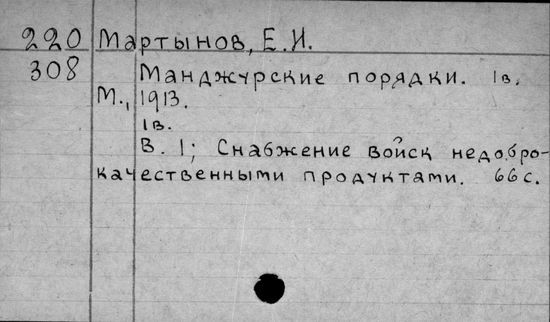 220 Мартынов, Е.И.
308 Манджурские порядки. 1в.
М., 1913.
1в.
В. 1; Снабжение войск недобро-
качественными продуктами. 66с.